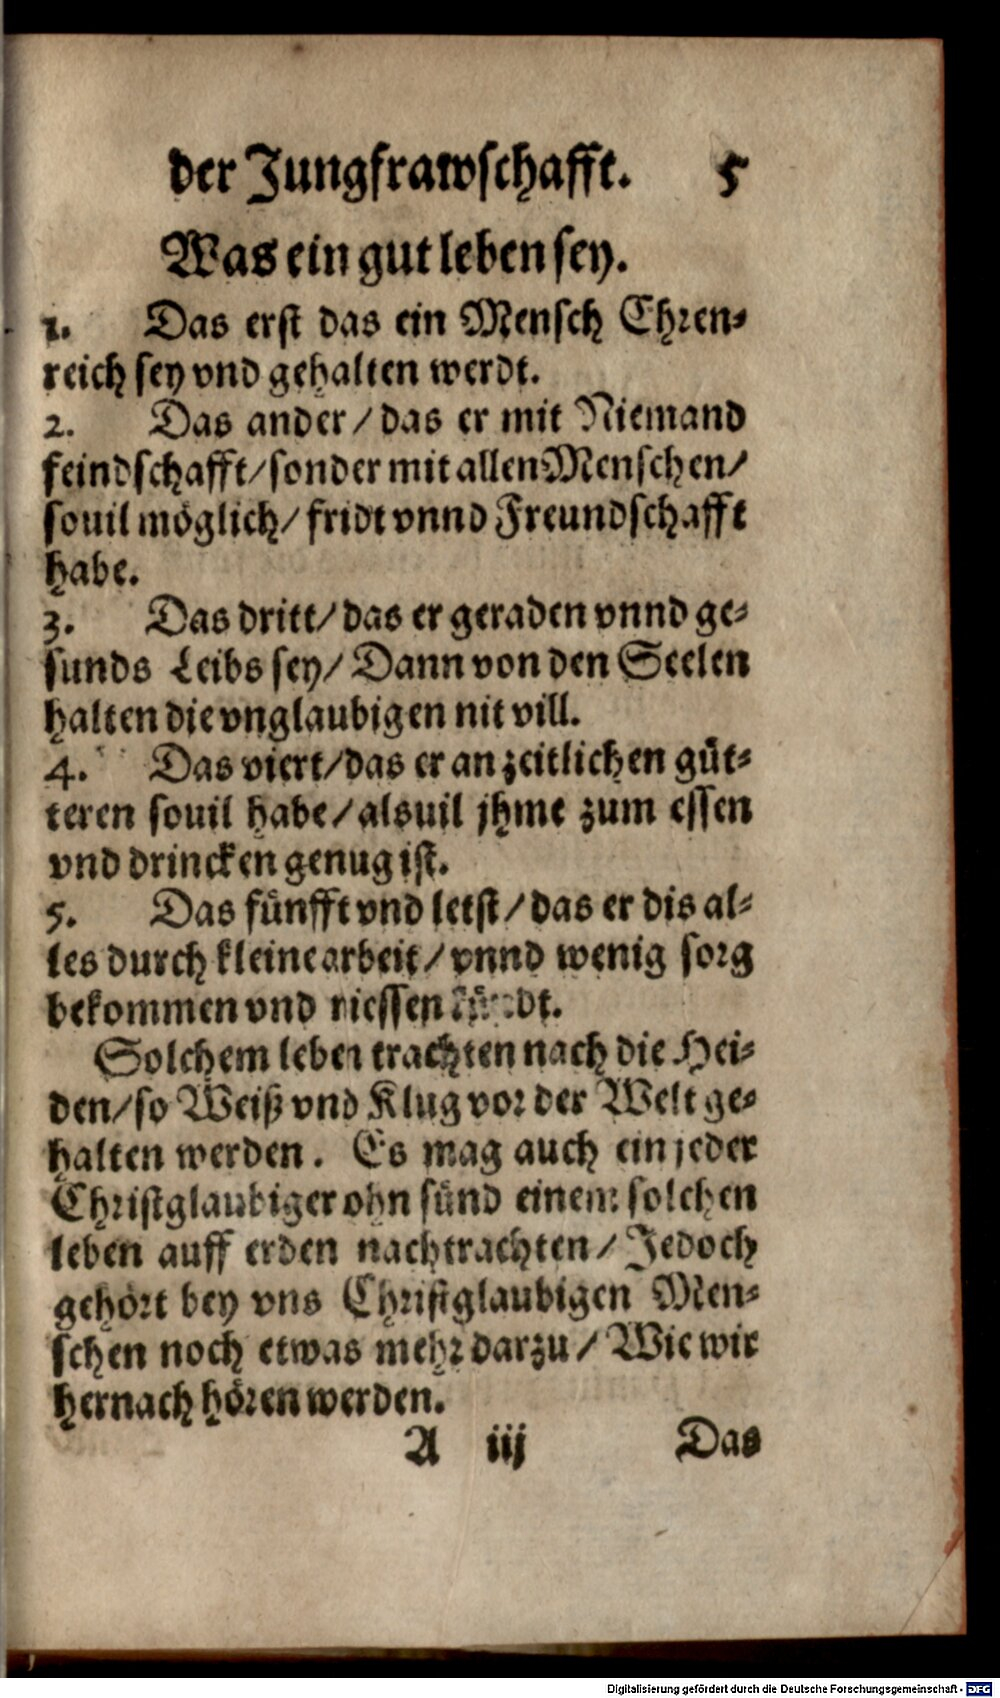 der Jungfrawschafft. 5
Was ein gut leben sey.
1. Das erst das ein Mensch Ehren-
reich sey vnd gehalten werdt.
2. Das ander / das er mit Niemand
feindschafft / sonder mit allen Menschen /
souil möglich / fridt vnnd Freundschafft
habe.
3. Das dritt / das er geraden vnnd ge-
sunds Leibs sey / Dann von den Seelen
halten die vnglaubigen nit vill.
4. Das viert / das er an zeitlichen güt-
teren souil habe / alsuil jhme zum essen
vnd drincken genug ist.
5. Das fünfft vnd letst / das er dis al-
les durch kleine arbeit / vnnd wenig sorg
bekommen vnd niessen
Solchem leben trachten nach die Hei-
den / so Weiß vnd Klug vor der Welt ge-
halten werden. Es mag auch ein jeder
Christglaubiger ohn sünd einem solchen
leben auff erden nachtrachten / Jedoch
gehört bey vns Christglaubigen Men-
schen noch etwas mehr darzu / Wie wir
hernach hören werden.
A iij Das
Digitalisierung gefördert durch die Deutsche Forschungsgemeinschaft - DFG